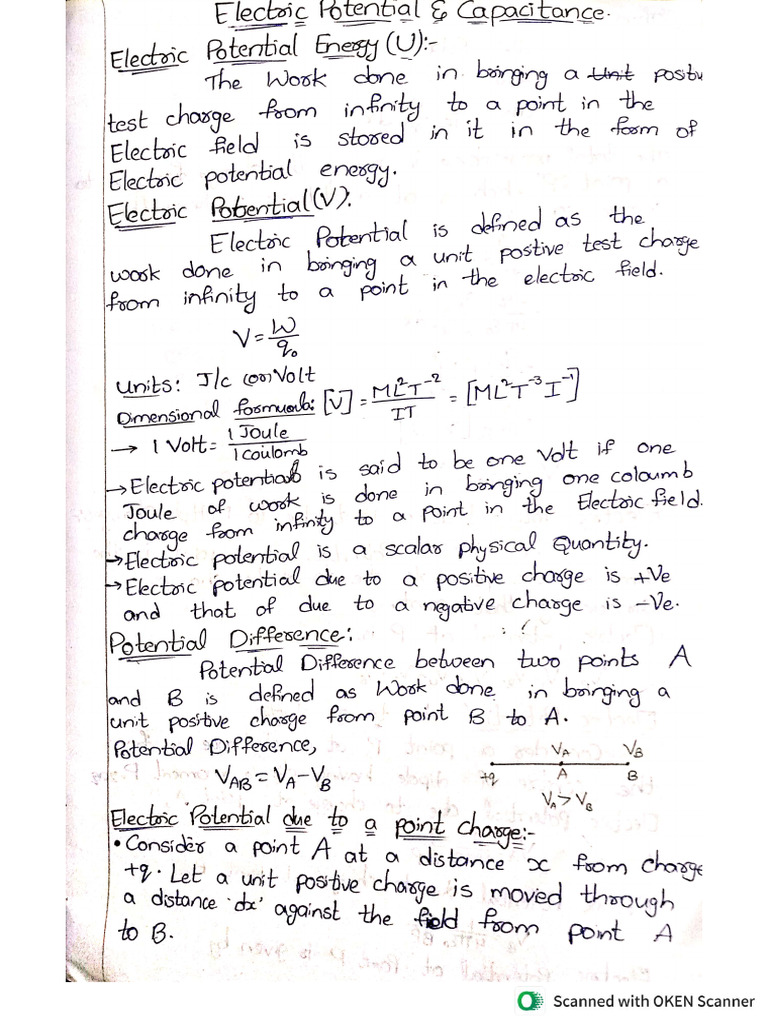 Electric Potential & Capacitance.
Electric Potential Energy (U):-
The Work done in bringing a Unit positiv
test charge from infinity to a point in the
Electric field is stored in it in the form of
Electric potential energy.
Electric Potential (V):
Electric Potential is defined as the
work done in bringing a unit postive test charge
from infinity to a point in the electric field.
V = W/q₀
Units: J/c (or) Volt
Dimensional formula: [V] = ML²T⁻²/IT = [ML²T⁻³I⁻¹]
→ 1 Volt = 1 Joule/1 Coulomb
→ Electric potential is said to be one volt if one
Joule of work is done in bringing one coloumb
charge from infinity to a point in the Electric field.
→ Electric potential is a scalar physical Quantity.
→ Electric potential due to a positive charge is +Ve
and that of due to a negative charge is -Ve.
Potential Difference:
Potential Difference between two points A
and B is defined as Work done in bringing a
unit positive charge from point B to A.
Potential Difference,
V_AB = V_A - V_B
V_A V_B
+q A B
V_A > V_B
Electric Potential due to a point charge:-
• Consider a point A at a distance x from charge
+q. Let a unit positive charge is moved through
a distance 'dx' against the field from point A
to B.
Scanned with OKEN Scanner